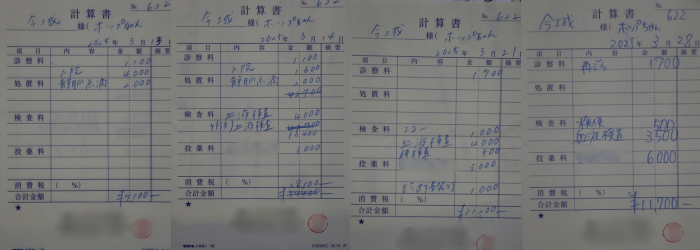 計算書
№ 622
今城
様( ホップちゃん
2025年 3月 日
項目 内容 金額 摘要
診察料 2,100
入院 4,000
処置料 静脈点滴 2,000
検査料
投薬料
消費税 ( %)
合計金額
★
計算書
№ 622
今城
様( ホップちゃん
2025年 3月 14日
項目 内容 金額 摘要
診察料 1,100
入院 1,600
処置料 静脈点滴 2,000
検査料 血液検査 4,000
外部血液検査
16,400
投薬料 3,000
消費税 ( %) 28,100
合計金額
★
計算書
№ 622
今城
様( ホップちゃん
2025年 3月 21日
項目 内容 金額 摘要
診察料 1,700
処置料
検査料 エコー 1,000
血液検査 4,000
検査
投薬料 3,000
1,000
消費税 ( %)
合計金額
★
計算書
№ 622
今城
様( ホップちゃん
2025年 3月 28日
項目 内容 金額 摘要
診察料 再診 1700
処置料
検査料 検便 500
血液検査 3500
投薬料 6000
消費税 ( %)
合計金額 ¥11,700-
★